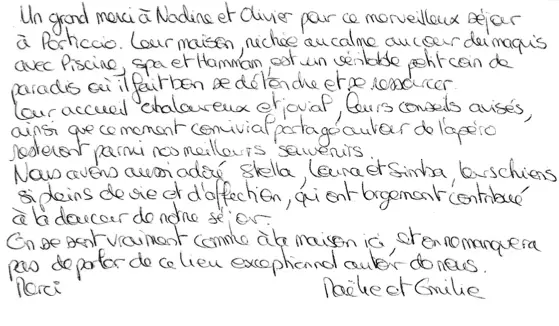 Un grand merci à Nadine et Olivier pour ce merveilleux séjour
à Porticcio. Leur maison, nichée au calme au cœur du maquis
avec Piscine, spa et Hammam, est un véritable petit coin de
paradis où il fait bon se détendre et se ressourcer.
Leur accueil chaleureux et jovial, leurs conseils avisés,
ainsi que ce moment convivial partagé autour de l'apéro
resteront parmi nos meilleurs souvenirs.
Nous avons aussi adoré Stella, Leuna et Simba, leurs chiens
si pleins de vie et d'affection, qui ont largement contribué
à la douceur de notre séjour.
On se sent vraiment comme à la maison ici, et on ne manquera
pas de parler de ce lieu exceptionnel autour de nous.
Merci Maëlie et Emilie